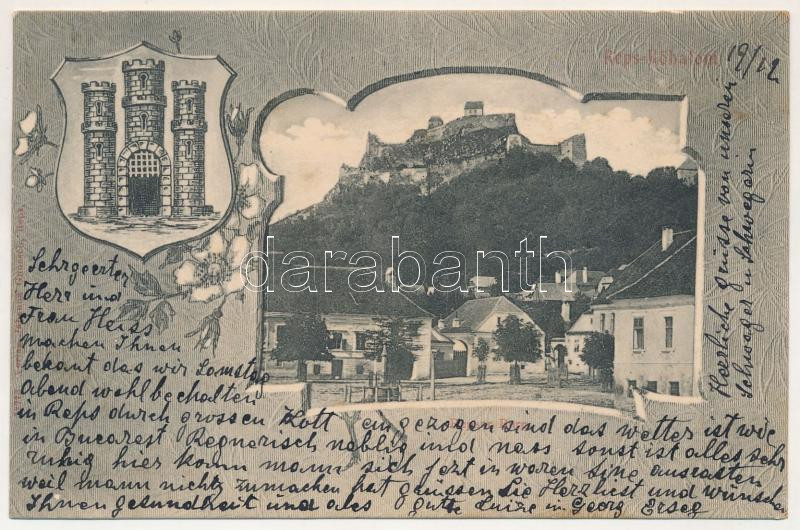 Reps-Kőhalom
19/12
Sehrgeerter
Herr und
Frau Heiss
machen Ihnen
bekant das wir Samstag
abend wohlbechalten
in Reps durch grossen Kott ein gezogen sind das wetter ist wie
in Bucarest Regnerisch neblig und nass sonst ist alles sehr
ruhig hier kann mann sich jezt in waren sine ausrasten
weil mann nichtz zumachen hat grüssen Sie Herzliest und wünschen
Ihnen gesundheit und ales gutte Luize u Georg
Herliche grüsse von unseren
Schwager u Schwegerin
darabanth